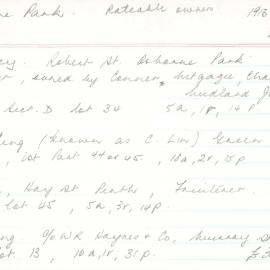 ne Park. Rateable owners 1913
Robert St. Osborne Park
, owned by Connor, Mtgagee, Cha
Midland J
Sect. D Lot 34 5a, 1r, 14p
ung (known as C. Lin) Green
, Lot Part 44 or 45, 10a, 2r, 15p
, Hay St Perth,
Lot 45, 5a, 3r, 14p.
ng c/o W R Haynes & Co, Murray S
ot. 13, 10a, 1r, 31p.